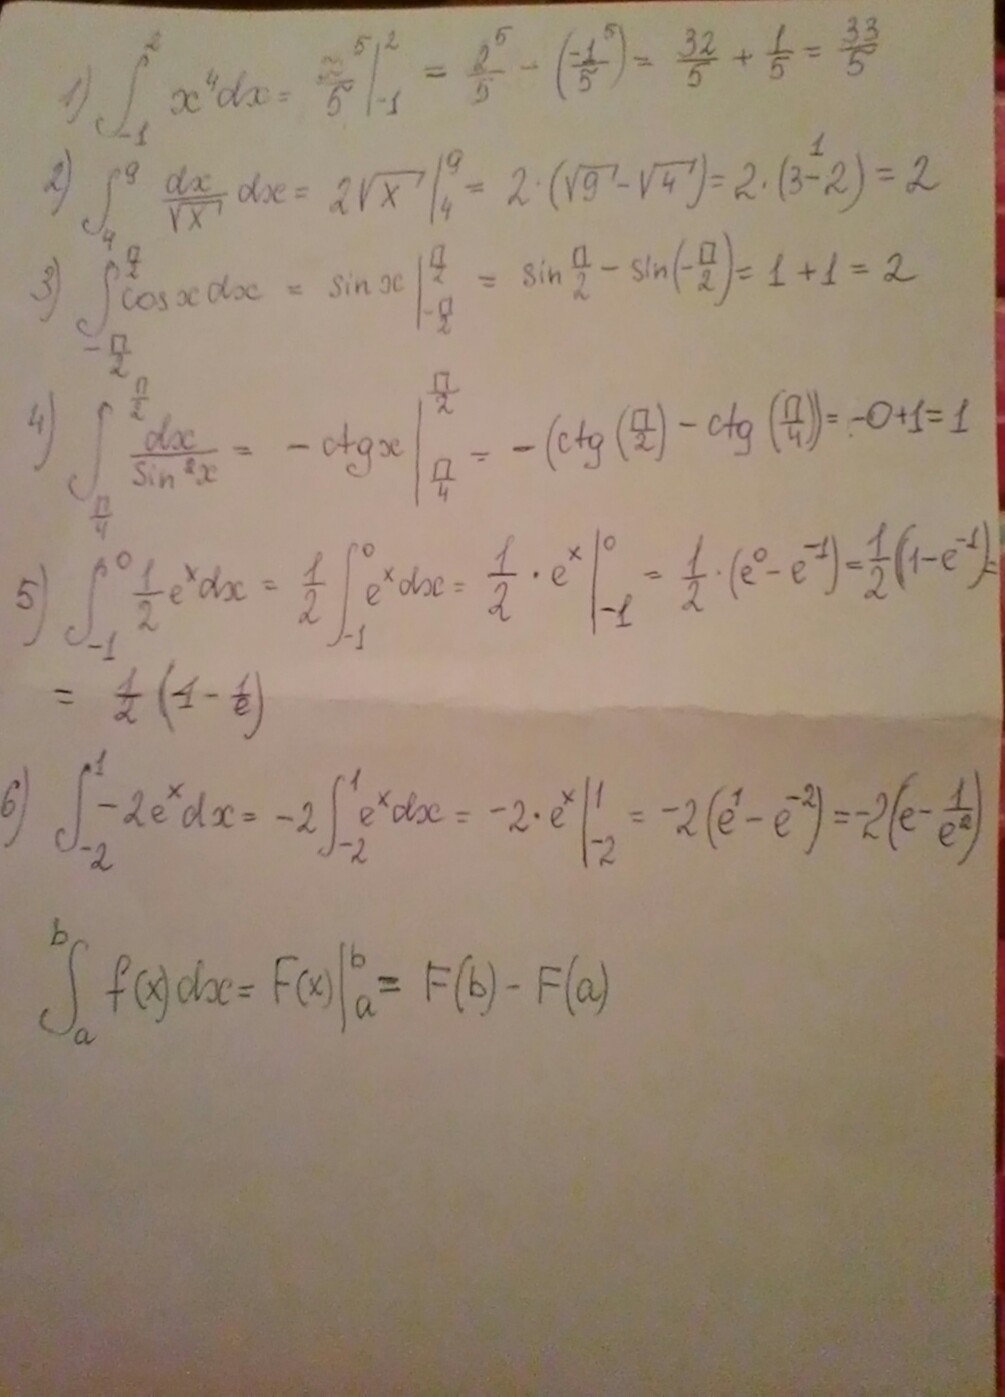 1) ∫_{-1}^{2} x⁴dx = x⁵/5 |_{-1}^{2} = 2⁵/5 - (-1⁵/5) = 32/5 + 1/5 = 33/5
2) ∫_{4}^{9} dx/√x dx = 2√x |_{4}^{9} = 2·(√9 - √4) = 2·(3-2)¹ = 2
3) ∫_{-π/2}^{π/2} cosxdx = sinx |_{-π/2}^{π/2} = sin π/2 - sin(-π/2) = 1+1 = 2
4) ∫_{π/4}^{π/2} dx/sin²x = -ctgx |_{π/4}^{π/2} = -(ctg(π/2) - ctg(π/4)) = -0+1 = 1
5) ∫_{-1}^{0} 1/2 eˣdx = 1/2 ∫_{-1}^{0} eˣdx = 1/2 · eˣ |_{-1}^{0} = 1/2 · (e⁰ - e⁻¹) = 1/2 (1 - e⁻¹) =
= 1/2 (1 - 1/e)
6) ∫_{-2}^{1} -2eˣdx = -2 ∫_{-2}^{1} eˣdx = -2·eˣ |_{-2}^{1} = -2(e¹ - e⁻²) = -2(e - 1/e²)
∫_{a}^{b} f(x)dx = F(x) |_{a}^{b} = F(b) - F(a)